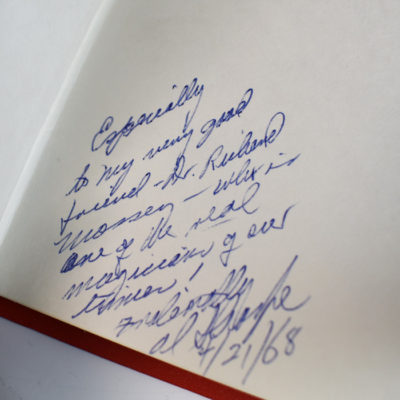 Especially
to my very good
friend - Dr. Richard
Mossey - who is
one of the real
magicians of our
times!
al
4/21/68